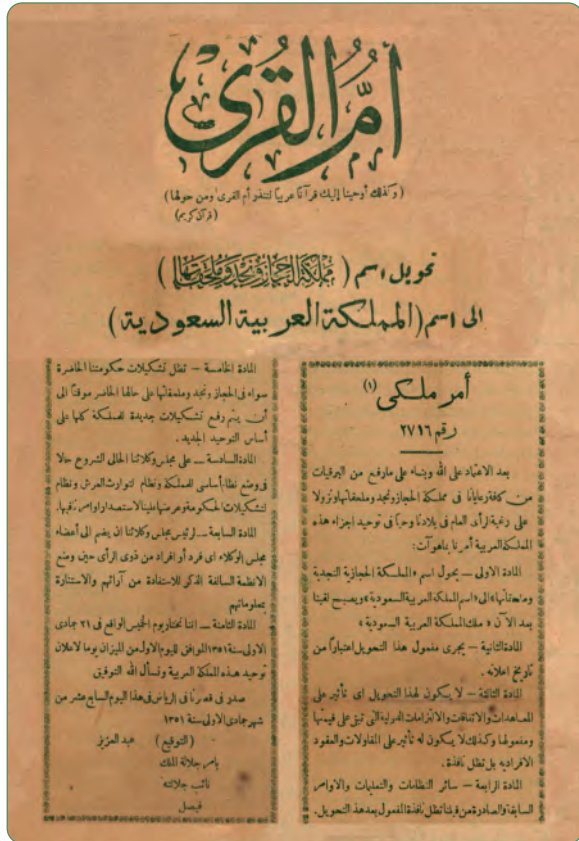 أم القرى
(وكذلك أوحينا إليك قرآنا عربيا لتنذر أم القرى ومن حولها)
(قرآن كريم)
تحويل اسم (مملكة الحجاز ونجد وملحقاتها)
الى اسم (المملكة العربية السعودية)
أمر ملكى (١)
رقم ٢٧١٦
بعد الاعتماد على الله وبناء على مارفع من البرقيات
من كافة رعايانا فى مملكة الحجاز ونجد وملحقاتها ونزولا
على رغبة الرأى العام فى بلادنا وحبا فى توحيد اجزاء هذه
المملكة العربية أمرنا بما هو آت:
المادة الاولى – يحول اسم «المملكة الحجازية النجدية
وملحقاتها» الى «اسم المملكة العربية السعودية» ويصبح لقبنا
بعد الآن «ملك المملكة العربية السعودية»
المادة الثانية – يجرى مفعول هذا التحويل اعتباراً من
تاريخ اعلانه .
المادة الثالثة – لا يكون لهذا التحويل اى تأثير على
المعاهدات والاتفاقات والالتزامات الدولية التى تبقى على قيمتها
ومفعولها وكذلك لا يكون له تأثير على المقاولات والعقود
الافرادية بل تظل نافذة .
المادة الرابعة – سائر النظامات والتعليمات والاوامر
السابقة والصادرة من قبلنا تظل نافذة المفعول بعد هذا التحويل.
المادة الخامسة – تظل تشكيلات حكومتنا الحاضرة
سواء فى الحجاز ونجد وملحقاتها على حالها الحاضر موقتاً الى
أن يتم رفع تشكيلات جديدة للمملكة كلها على
أساس التوحيد الجديد .
المادة السادسة – على مجلس وكلائنا الحالى الشروع حالا
فى وضع نظام أساسى للمملكة ونظام لتوارث العرش ونظام
لتشكيلات الحكومة وعرضها علينا لاستصدار اوامرنا فيها.
المادة السابعة – لرئيس مجلس وكلائنا ان يضم الى أعضاء
مجلس الوكلاء اى فرد أو افراد من ذوى الرأى حين وضع
الانظمة السالفة الذكر للاستفادة من آرائهم والاستنارة
بمعلوماتهم
المادة الثامنة – اننا نختار يوم الخميس الواقع فى ٢١ جمادى
الاولى سنة ١٣٥١ الموافق لليوم الاول من الميزان يوما لاعلان
توحيد هذه المملكة العربية ونسأل الله التوفيق
صدر فى قصرنا فى الرياض فى هذا اليوم السابع عشر من
شهر جمادى الاولى سنة ١٣٥١
(التوقيع) عبد العزيز
بامر جلالة الملك
نائب جلالته
فيصل